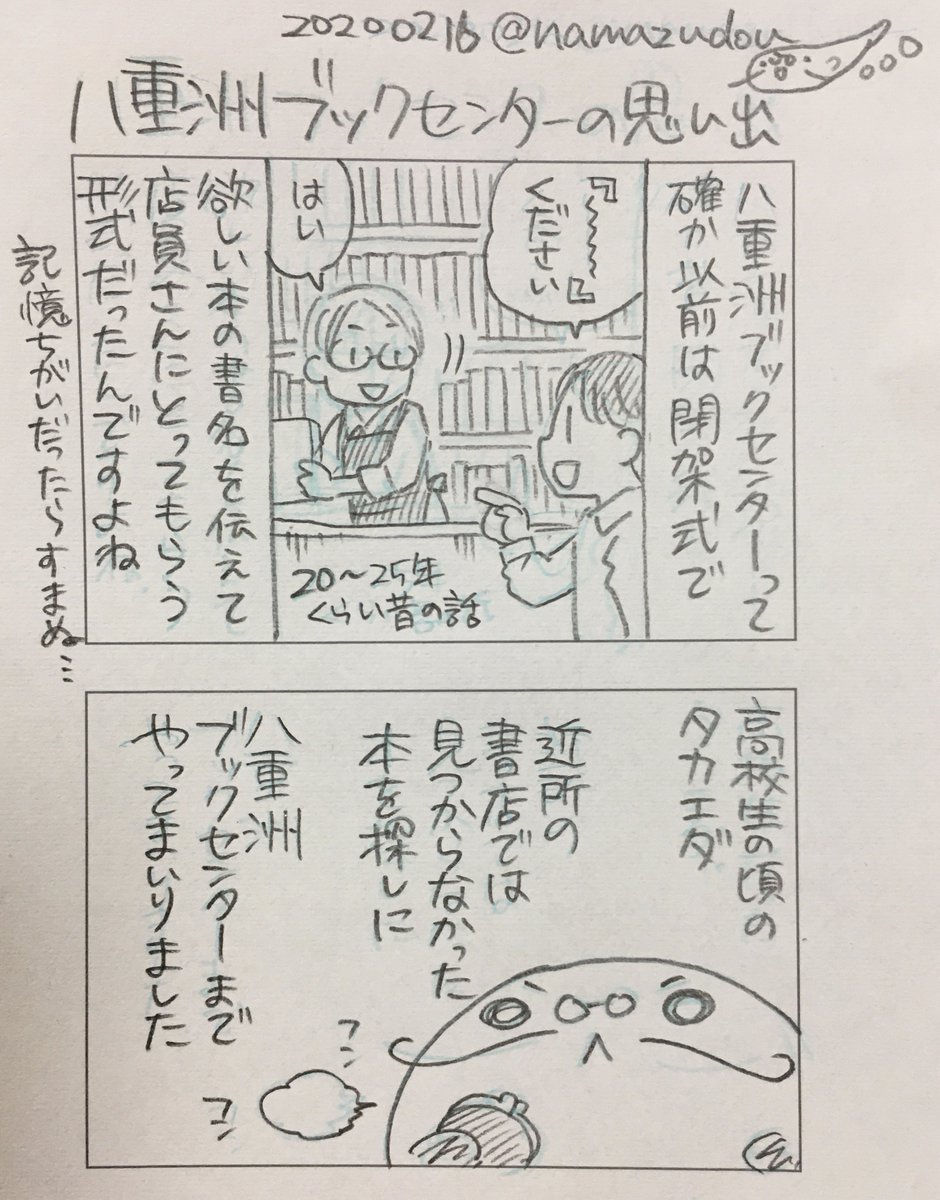 20200216 @namazudou
八重洲ブックセンターの思い出
八重洲ブックセンターって
確か以前は閉架式で
『〜〜〜』
ください
はい
20〜25年
くらい昔の話
欲しい本の書名を伝えて
店員さんにとってもらう
形式だったんですよね
記憶ちがいだったらすまぬ…
高校生の頃の
タカエダ
近所の
書店では
見つからなかった
本を探しに
八重洲
ブックセンターまで
やってまいりました
フン
フン